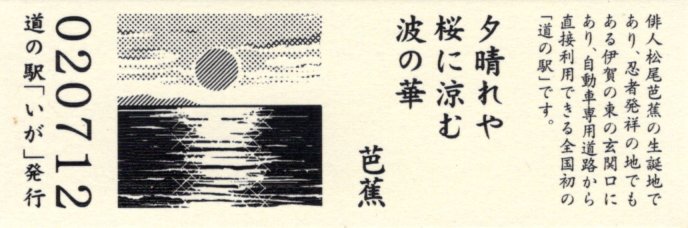 俳人松尾芭蕉の生誕地で
あり、忍者発祥の地でも
ある伊賀の東の玄関口に
あり、自動車専用道路から
直接利用できる全国初の
「道の駅」です。
夕晴れや
桜に涼む
波の華
芭蕉
020712
道の駅「いが」発行